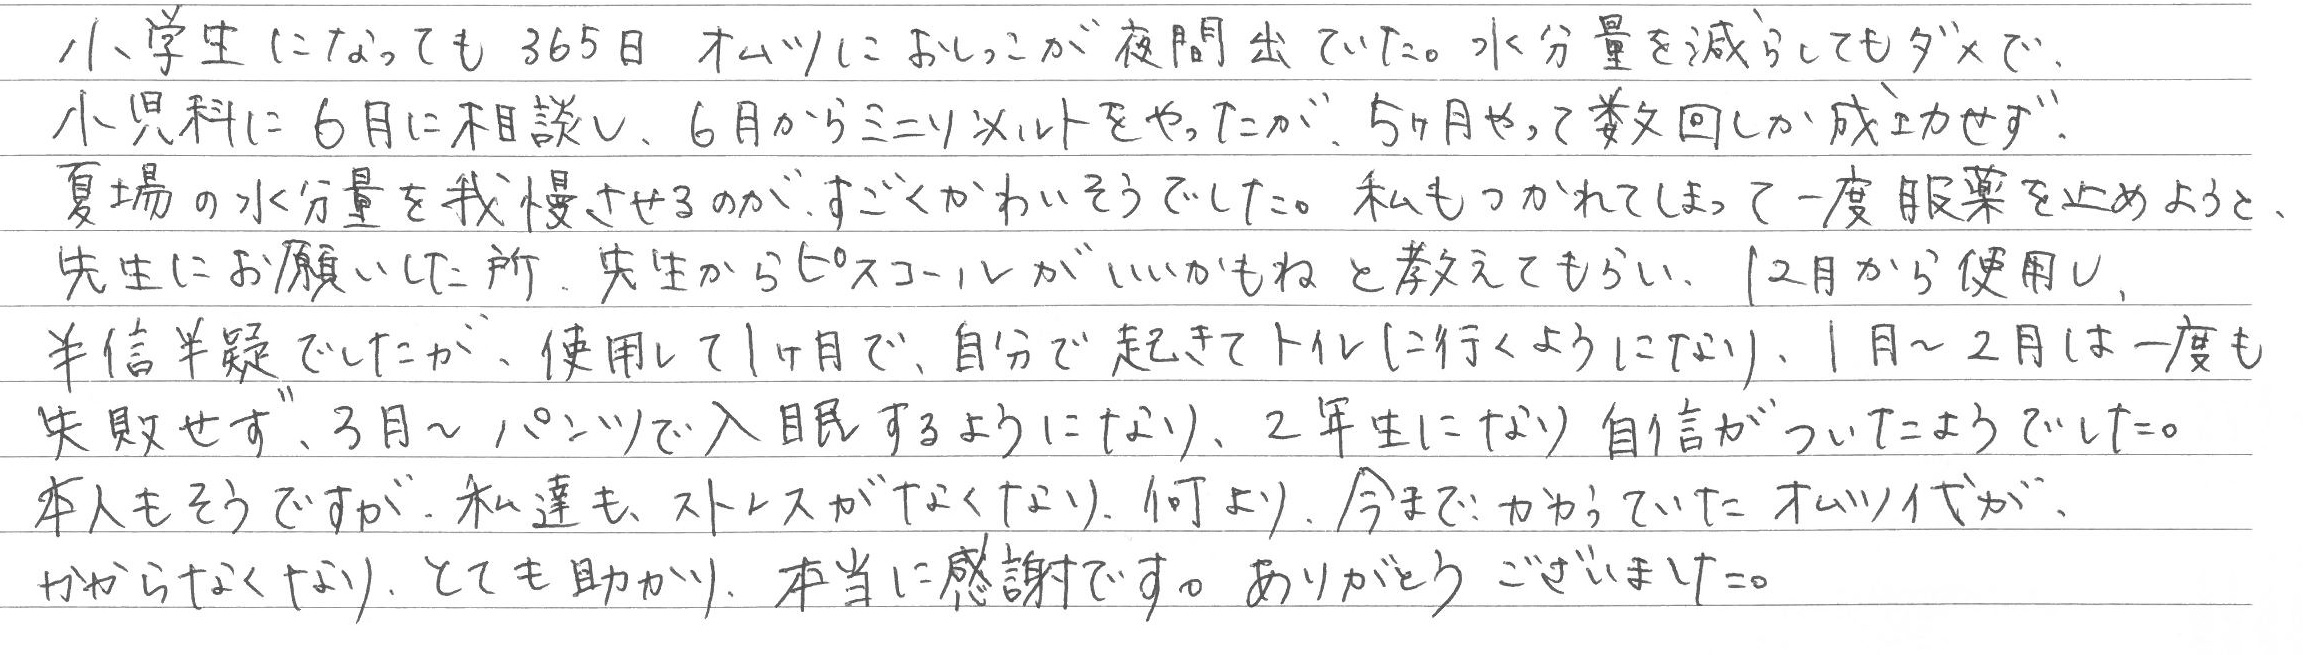 小学生になっても365日 オムツにおしっこが夜間出ていた。水分量を減らしてもダメで、
小児科に6月に相談し、6月からミニリンメルトをやったが、5ヶ月やって数回しか成功せず、
夏場の水分量を我慢させるのが、すごくかわいそうでした。私もつかれてしまって一度服薬を止めようと、
先生にお願いした所、先生からピスコールがいいかもねと教えてもらい、12月から使用し、
半信半疑でしたが、使用して1ヶ月で、自分で起きてトイレに行くようになり、1月~2月は一度も
失敗せず、3月~パンツで入眠するようになり、2年生になり自信がついたようでした。
本人もそうですが、私達も、ストレスがなくなり、何より、今まで、かかっていたオムツ代が、
かからなくなり、とても助かり、本当に感謝です。ありがとうございました。